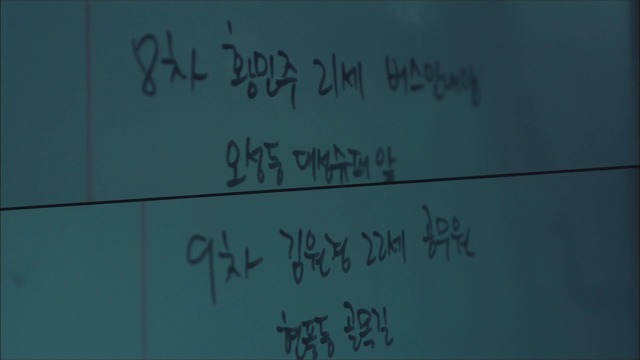 8차 황민주 21세 버스안내양
오성동 대성슈퍼 앞
9차 김원경 22세 공무원
현풍동 골목길